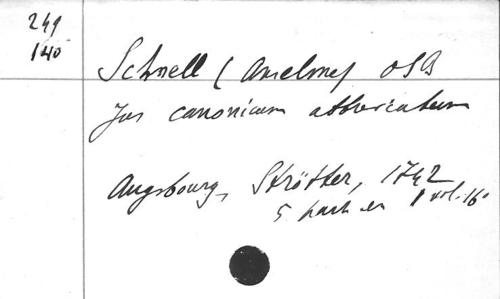 249
140
Schnell (Anselme) OSB
Jus canonicum abbreviatum
Augsbourg, Strötter, 1742
5 part en 1 vol. 16°